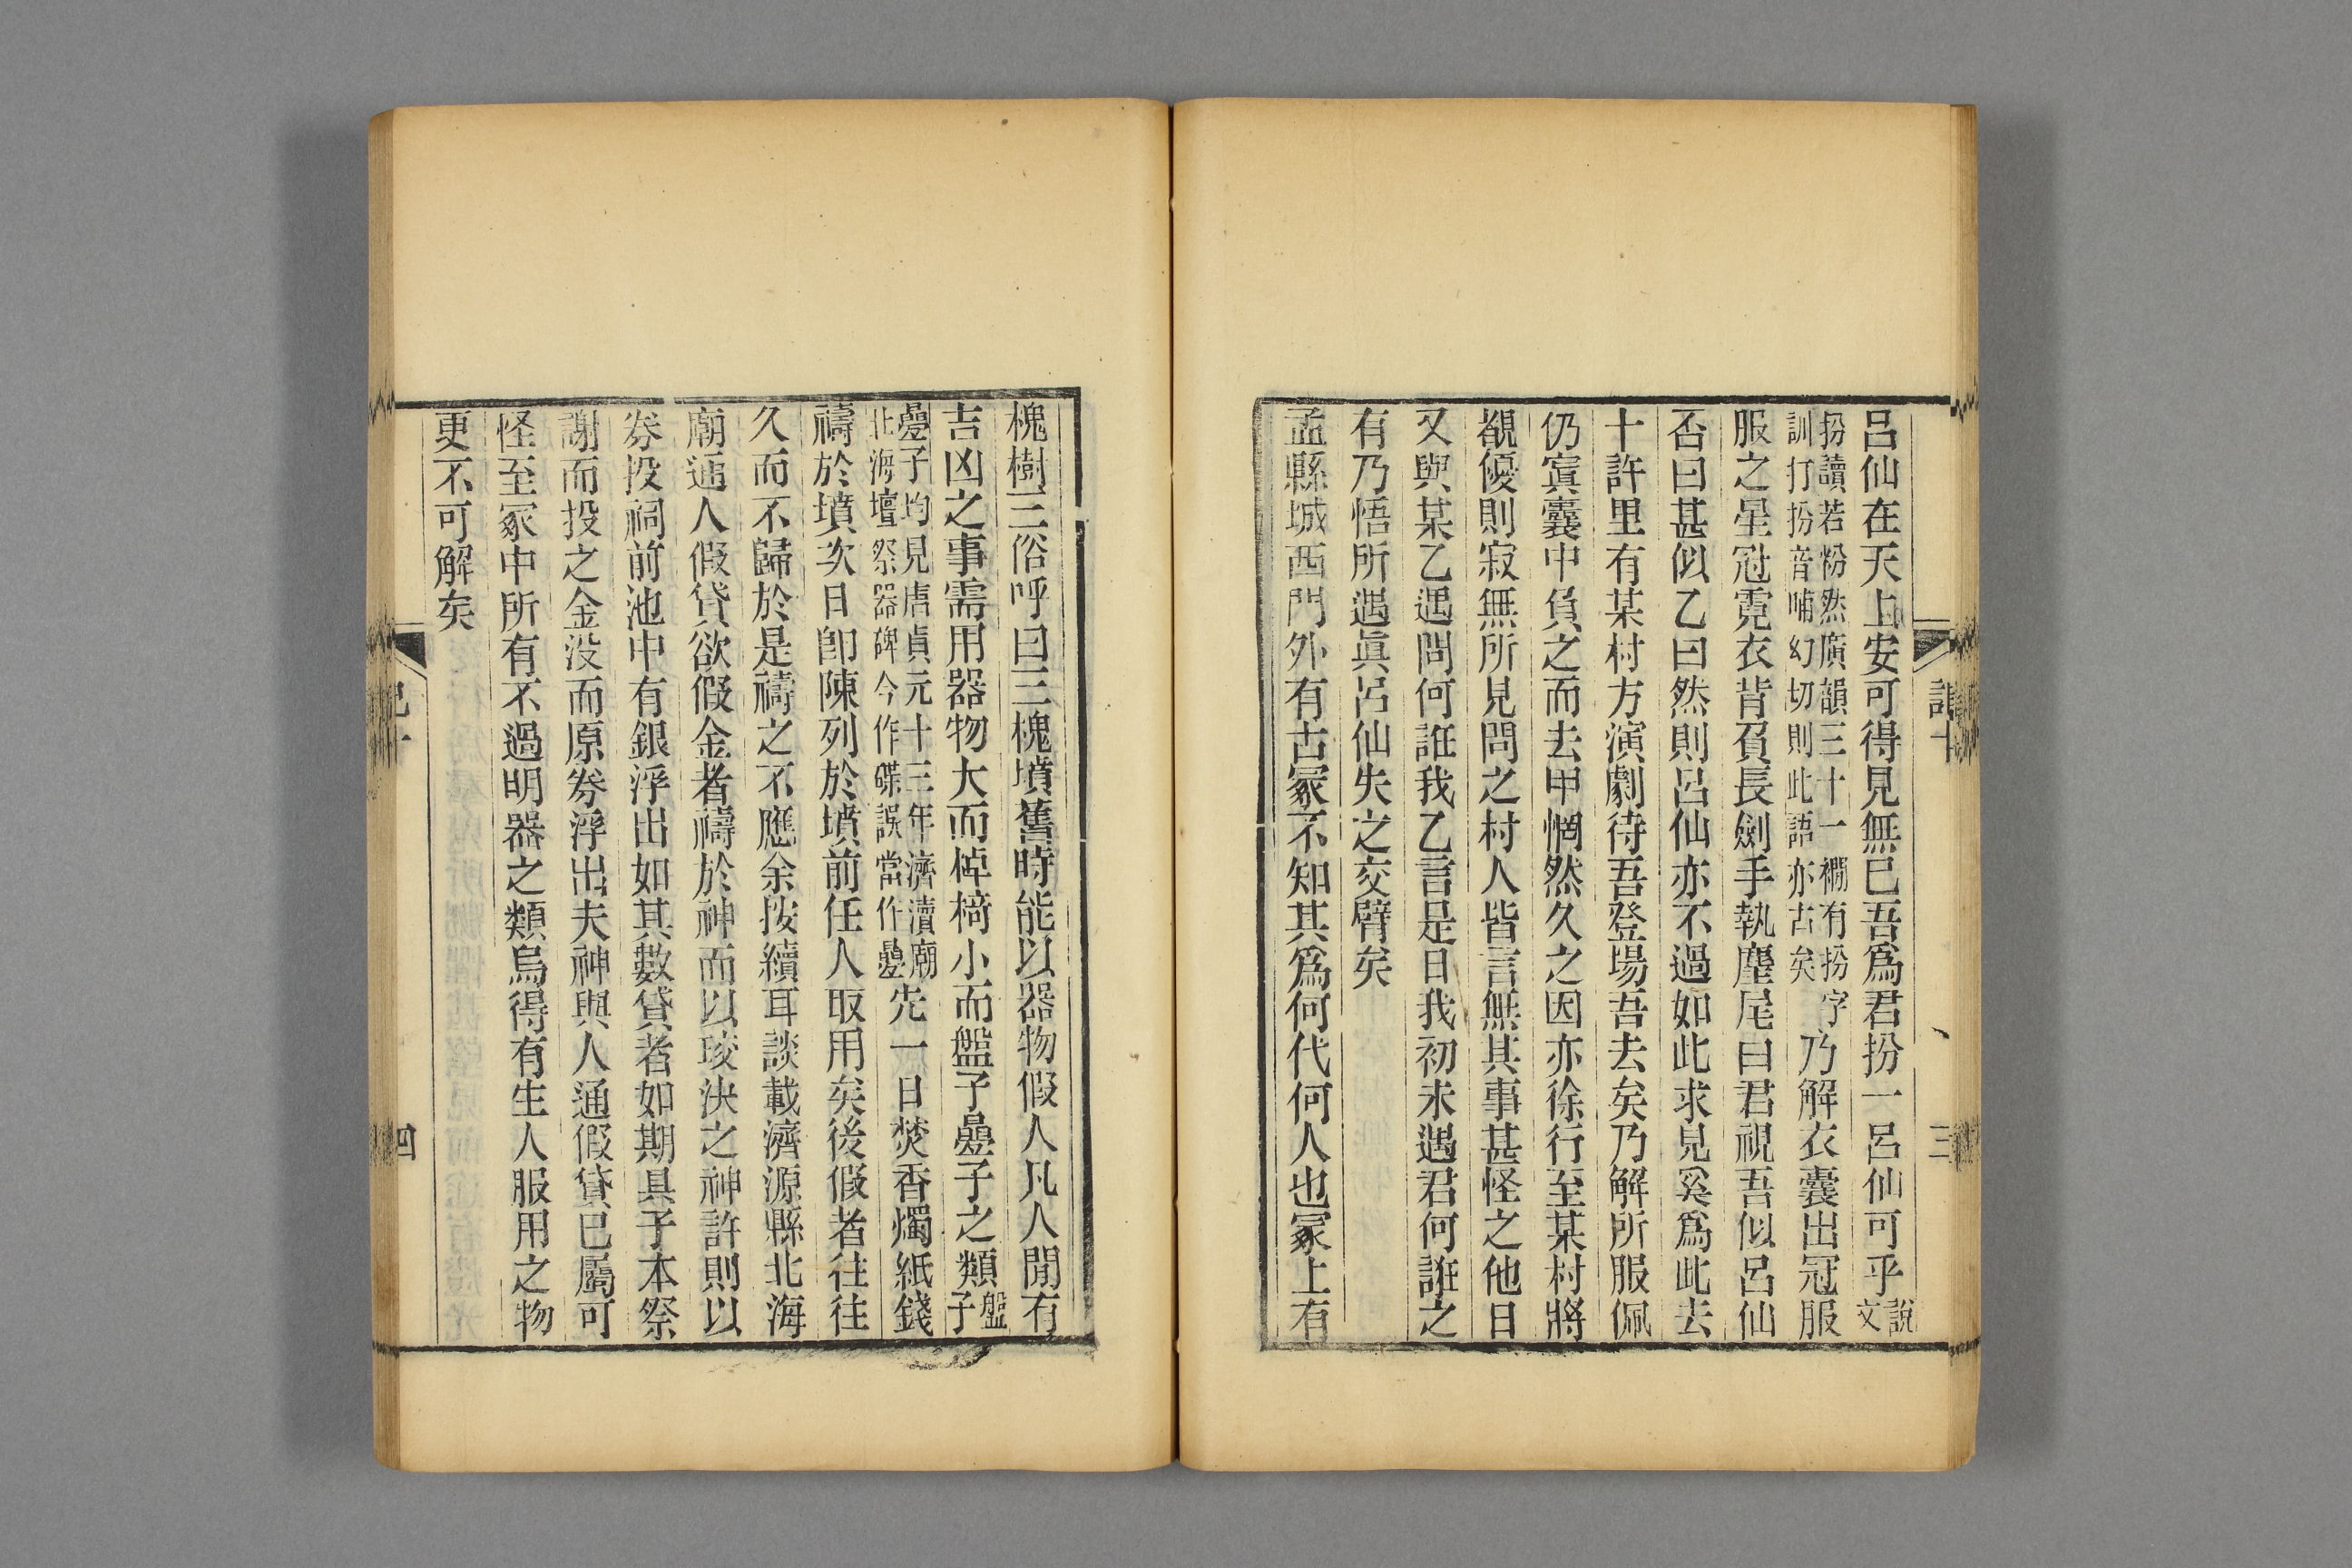 呂仙在天上安可得見無已吾爲君扮一呂仙可乎說文
扮讀若粉然廣韻三十一襉有扮字
訓打扮音哺幻切則此語亦古矣
乃解衣囊出冠服
服之星冠霓衣背負長劍手執麈尾曰君視吾似呂仙
否曰甚似乙曰然則呂仙亦不過如此求見奚爲此去
十許里有某村方演劇待吾登場吾去矣乃解所服佩
仍寘囊中負之而去甲惘然久之因亦徐行至某村將
覩優則寂無所見問之村人皆言無其事甚怪之他日
又與某乙遇問何誑我乙言是日我初未遇君何誑之
有乃悟所遇眞呂仙失之交臂矣
孟縣城西門外有古冢不知其爲何代何人也冢上有
三
槐樹三俗呼曰三槐墳舊時能以器物假人凡人閒有
吉凶之事需用器物大而棹椅小而盤子疊子之類盤子
疊子均見唐貞元十三年濟瀆廟
北海壇祭器碑今作碟誤當作疊
先一日焚香燭紙錢
禱於墳次日卽陳列於墳前任人取用矣後假者往往
久而不歸於是禱之不應余按續耳談載濟源縣北海
廟通人假貸欲假金者禱於神而以珓決之神許則以
券投祠前池中有銀浮出如其數貸者如期具子本祭
謝而投之金没而原券浮出夫神與人通假貸已屬可
怪至冢中所有不過明器之類烏得有生人服用之物
更不可解矣
四